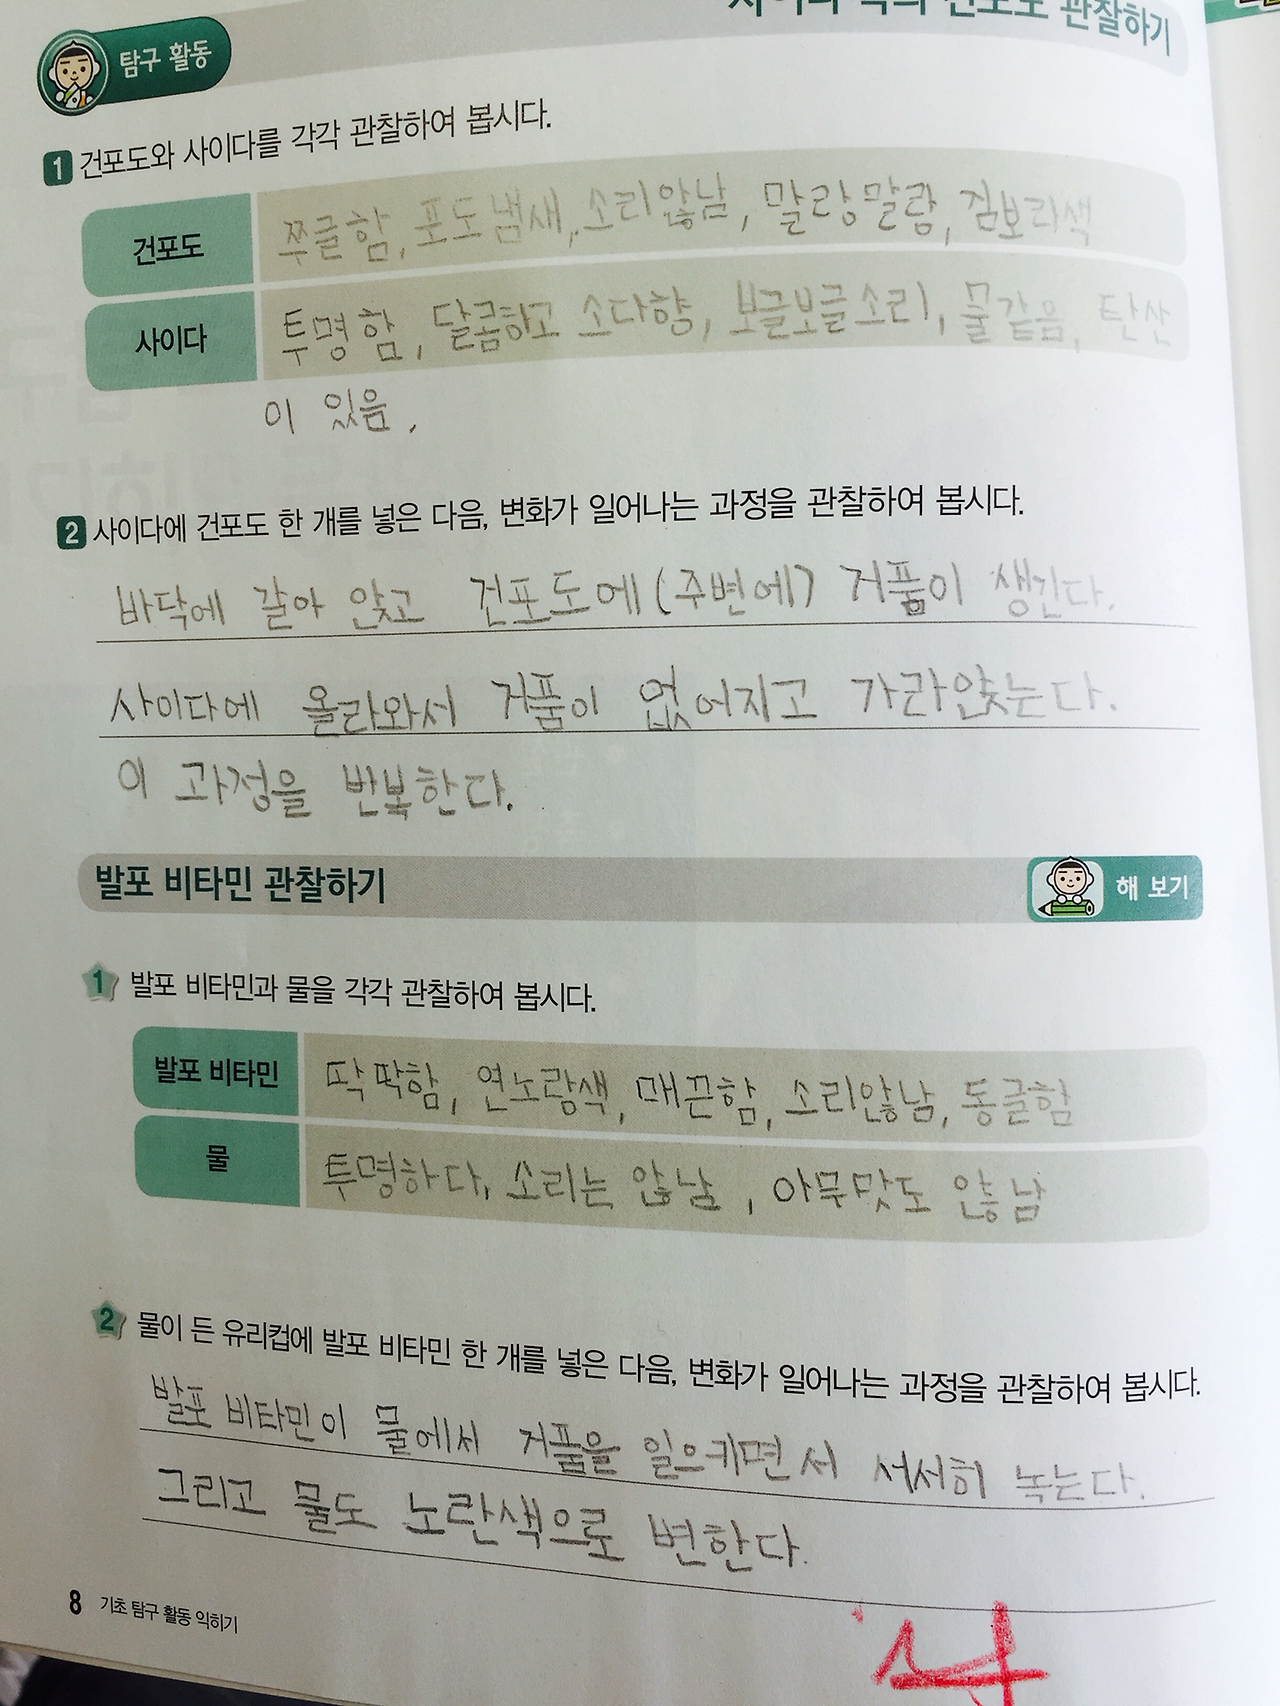 사이다 속의 건포도 관찰하기
탐구 활동
1 건포도와 사이다를 각각 관찰하여 봅시다.
건포도 쭈글함, 포도냄새, 소리않남, 말랑말랑, 짐보라색
사이다 투명함, 달콤하고 소다향, 보글보글소리, 물같음, 탄산
이 있음,
2 사이다에 건포도 한 개를 넣은 다음, 변화가 일어나는 과정을 관찰하여 봅시다.
바닥에 갈아 앉고 건포도에(주변에) 거품이 생긴다.
사이다에 올라와서 거품이 없어지고 가라앉는다.
이 과정을 반복한다.
발포 비타민 관찰하기
해 보기
1 발포 비타민과 물을 각각 관찰하여 봅시다.
발포 비타민 딱딱함, 연노랑색, 매끈함, 소리않남, 동글함
물 투명하다, 소리는 않남, 아무맛도 않남
2 물이 든 유리컵에 발포 비타민 한 개를 넣은 다음, 변화가 일어나는 과정을 관찰하여 봅시다.
발포 비타민이 물에서 거품을 일으키면서 서서히 녹는다.
그리고 물도 노란색으로 변한다.
8 기초 탐구 활동 익히기